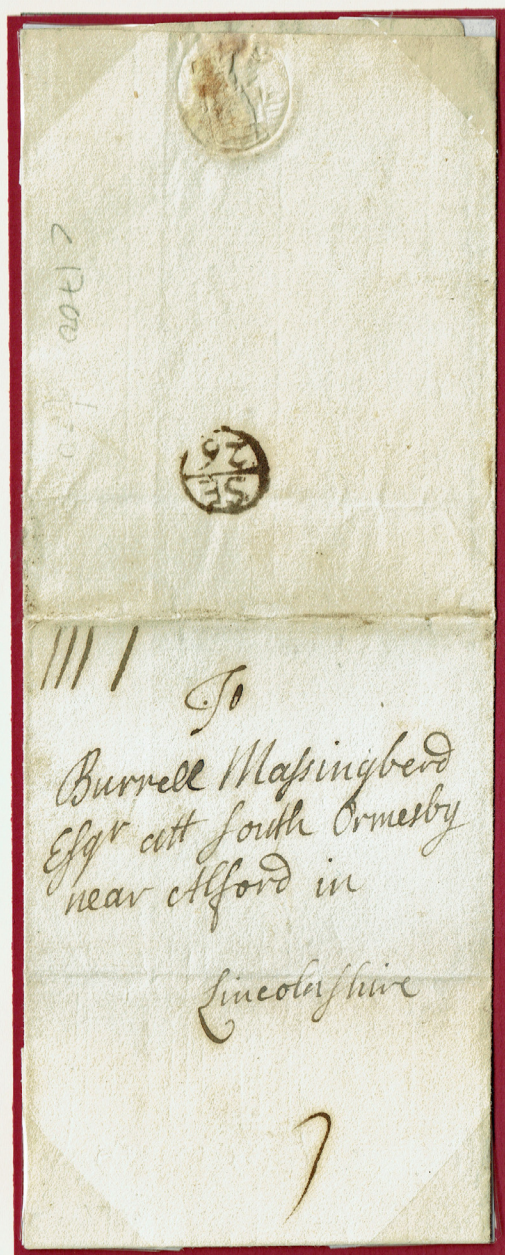 SE
26
To
Burrell Massingberd
Esqr att South Ormesby
near Alford in
Lincolnshire
7